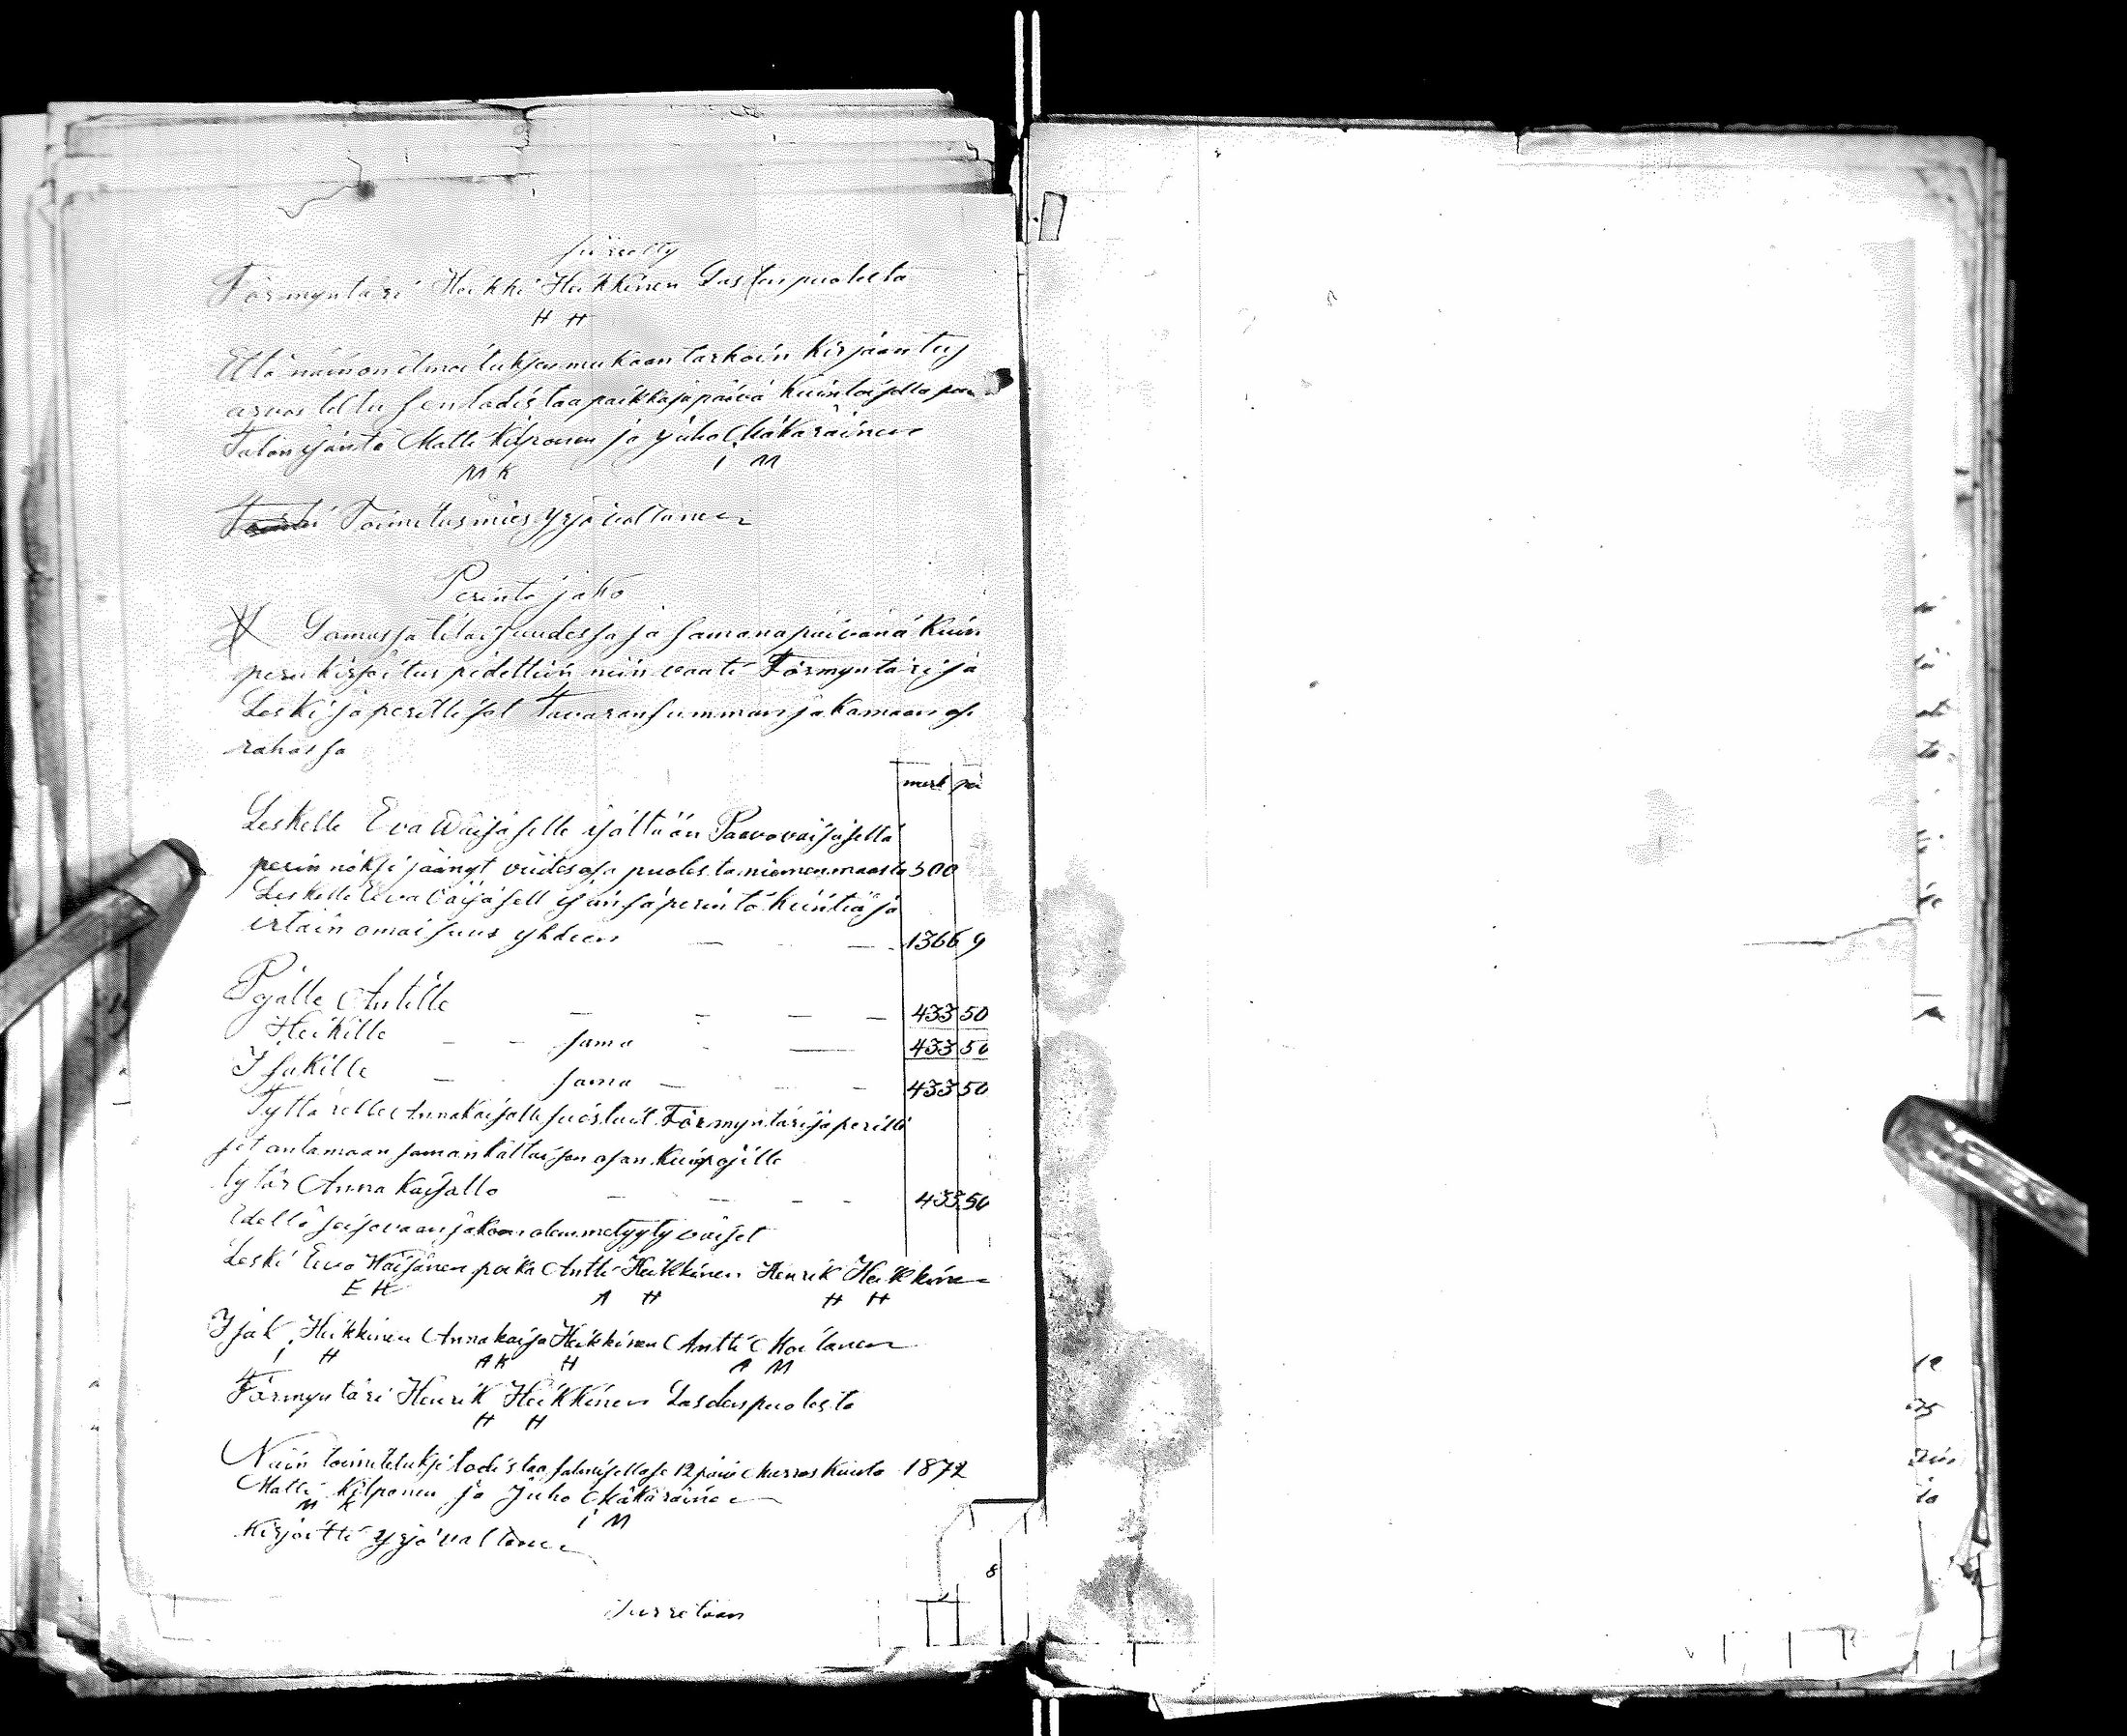 siirretty
Förmyntäri Heikki Heikkinen Lasten puolesta
H H
Että näin on ilmoituksen mukaan tarkoin Kirjään tuj
arvosteltu sen todistaa paikka ja päivä kuin toisella puo
Talon isäntä Matti Kilponen ja Juho Mäkäräinen
M K I M
Toimitusmies Yrjö valtanen
Perintö jako
Samassa tilaisuudessa ja samana päivänä kuin
perukirjoitus pidettiin niin vaati Förmyntäri ja
Leski ja perilliset Tavaran summan jakamaan
rahassa
mark pä
Leskelle Eva Väisäselle isältään Paavo väisäseltä
perinnöksi jäänyt viides osa puolesta niemen maasta 500
Leskelle Eeva Väisäsell isänsä perintö kiintiä ja
irtain omaisuus yhdeen 1366 9
Pojalle Antille 433 50
Heikille sama 433 50
Isakille sama 433 50
Tyttärelle Annakaisalle suostuit Förmyntäri ja perilli
set antamaan saman kaltaisen osan kuin pojille
tytär Anna Kaisalle 433 50
Edellä seisovaan jakoon olemme tyytyväiset
Leski Eeva Häisänen poika Antti Heikkinen Henrik Heikkinen
E H A H H H
Isak Heikkinen Annakaisa Heikkinen Antti Moilanen
I H A K H A M
Förmyntäri Henrik Heikkinen Lasden puolesta
H H
Näin toimitetuksi todistaa 12 päivä Marraskuuta 1872
Matti Kilponen ja Juho Mäkäräinen
M K I M
Kirjoitti Yrjö valtanen
Siirretään
8